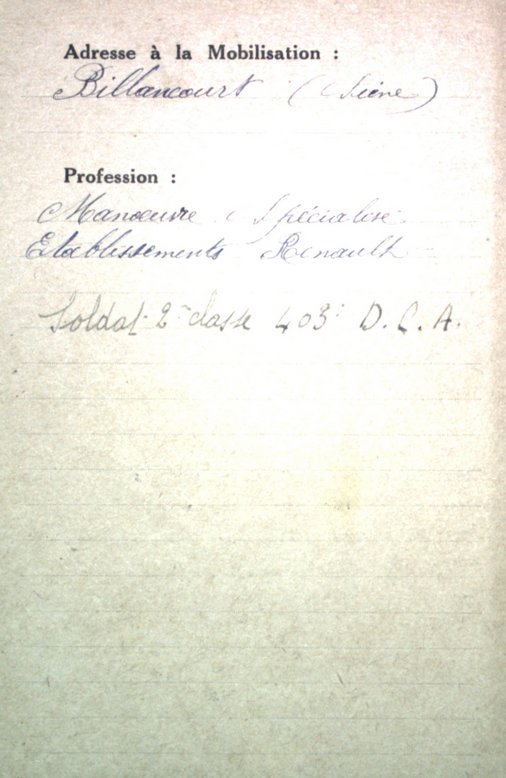 Adresse à la Mobilisation :
Billancourt (Seine)
Profession :
Manoeuvre Spécialisé
Etablissements Renault
Soldat 2me classe 403e D.C.A.